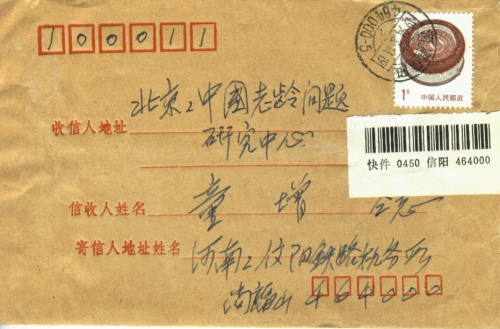 100011
464000-5
1元
中国人民邮政
北京:中國老龄问题
收信人地址
研究中心
快件 0450 信阳 464000
信收人姓名 童增
寄信人地址姓名 河南:信阳铁路机务段
464000